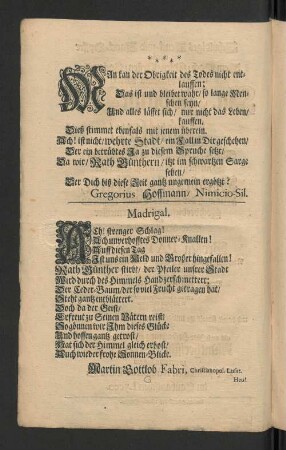 MAn kan der Obrigkeit des Todes nicht ent-
lauffen;
Das ist und bleibet wahr/ so lange Men-
schen seyn/
Und alles lässet sich/ nur nicht das Leben/
kauffen.
Dieß stimmet ebenfals mit jenem überein.
Ach! ist nicht/ wehrte Stadt/ ein Fall in Dir geschehen/
Der ein betrübtes Ja zu diesem Spruche setzt/
Da wir/ Rath Günthern/ itzt im schwartzen Sarge
sehen/
Der Dich biß diese Zeit gantz ungemein ergötzt?
Gregorius Hoffmann, Nimicio-Sil.
Madrigal.
ACh! strenger Schlag!
Ach unverhofftes Donner-Knallen!
Auff diesen Tag
Ist uns ein Held und Grosser hingefallen!
Rath Günther stirbt/ der Pfeiler unsrer Stadt
Wird durch des Himmels Hand zerschmettert;
Der Ceder-Baum/ der so viel Frucht getragen hat/
Steht gantz entblättert.
Doch da der Geist/
Erfreut zu Seinen Vätern reist;
So gönnen wir Ihm dieses Glück:
Und hoffen gantz getrost/
Hat sich der Himmel gleich erbost/
Auch wieder frohe Sonnen-Blicke.
Martin Gottlob Fabri, Christianopol. Lusat.